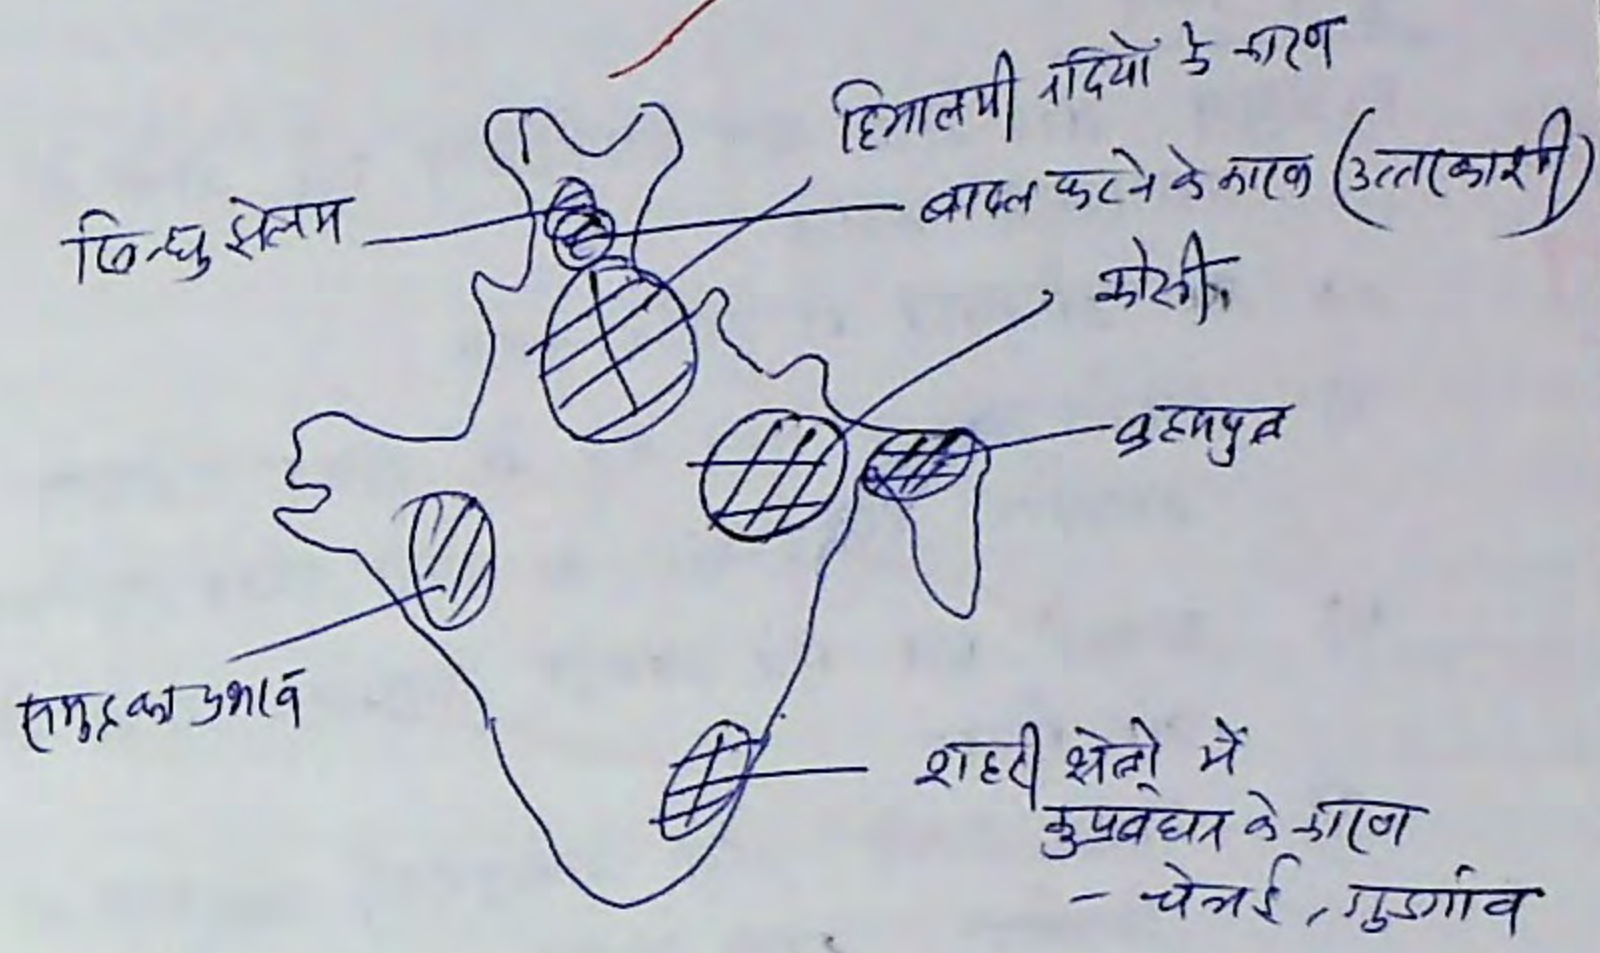 हिमालयी नदियों के कारण
बादल फटने के कारण (उत्तरकाशी)
सिन्धु झेलम
कोसी
ब्रह्मपुत्र
समुद्र का प्रभाव
शहरी क्षेत्रों में
कुप्रबंधन के कारण
- चेन्नई, गुडगांव